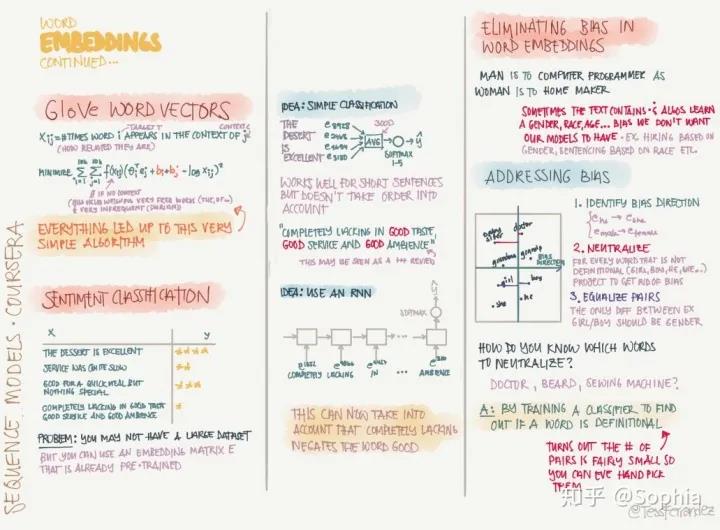 WORD
EMBEDDINGS
CONTINUED...
GloVe WORD VECTORS
Xij = #TIMES WORD i APPEARS IN THE CONTEXT OF j
TARGET
CONTEXT
(HOW RELATED THEY ARE)
MINIMIZE
10k 10k
Σ Σ f(Xij)(θiᵀej + bi + bj' - log Xij)²
i=1 j=1
EVERYTHING LED UP TO THIS VERY
SIMPLE ALGORITHM
SENTIMENT CLASSIFICATION
X Y
THE DESSERT IS EXCELLENT
SERVICE WAS QUITE SLOW
GOOD FOR A QUICK MEAL BUT
NOTHING SPECIAL
COMPLETELY LACKING IN GOOD TASTE
GOOD SERVICE AND GOOD AMBIENCE
PROBLEM: YOU MAY NOT HAVE A LARGE DATASET
BUT YOU CAN USE AN EMBEDDING MATRIX E
THAT IS ALREADY PRE-TRAINED
SEQUENCE MODELS • COURSERA
IDEA: SIMPLE CLASSIFICATION
THE
DESERT
IS
EXCELLENT
e8928
e2468
e4694
e3180
300D
AVG
ŷ
SOFTMAX
1-5
WORKS WELL FOR SHORT SENTENCES
BUT DOESN'T TAKE ORDER INTO
ACCOUNT
"COMPLETELY LACKING IN GOOD TASTE,
GOOD SERVICE AND GOOD AMBIENCE"
THIS MAY BE SEEN AS A +++ REVIEW
IDEA: USE AN RNN
SOFTMAX
1-5
e1852 e4966 e4427 ... e330
COMPLETELY LACKING IN ... AMBIENCE
THIS CAN NOW TAKE INTO
ACCOUNT THAT COMPLETELY LACKING
NEGATES THE WORD GOOD
ELIMINATING BIAS IN
WORD EMBEDDINGS
MAN IS TO COMPUTER PROGRAMMER AS
WOMAN IS TO HOME MAKER
SOMETIMES THE TEXT CONTAINS & ALGOS LEARN
A GENDER, RACE, AGE... BIAS WE DON'T WANT
OUR MODELS TO HAVE • EX. HIRING BASED ON
GENDER, SENTENCING BASED ON RACE ETC.
ADDRESSING BIAS
baby
sitter
doctor
grandma
grandpa
BIAS
DIRECTION
girl
boy
she
he
1. IDENTIFY BIAS DIRECTION
{ ehe → eshe
emale → efemale
2. NEUTRALIZE
FOR EVERY WORD THAT IS NOT
DEFINITIONAL (GIRL, BOY, HE, SHE...)
PROJECT TO GET RID OF BIAS
3. EQUALIZE PAIRS
THE ONLY DIFF BETWEEN EX
GIRL/BOY SHOULD BE GENDER
HOW DO YOU KNOW WHICH WORDS
TO NEUTRALIZE?
DOCTOR, BEARD, SEWING MACHINE?
A: BY TRAINING A CLASSIFIER TO FIND
OUT IF A WORD IS DEFINITIONAL
TURNS OUT THE # OF
PAIRS IS FAIRLY SMALL SO
YOU CAN EVE HAND PICK
THEM
知乎 @Sophia
@TessFerrandez